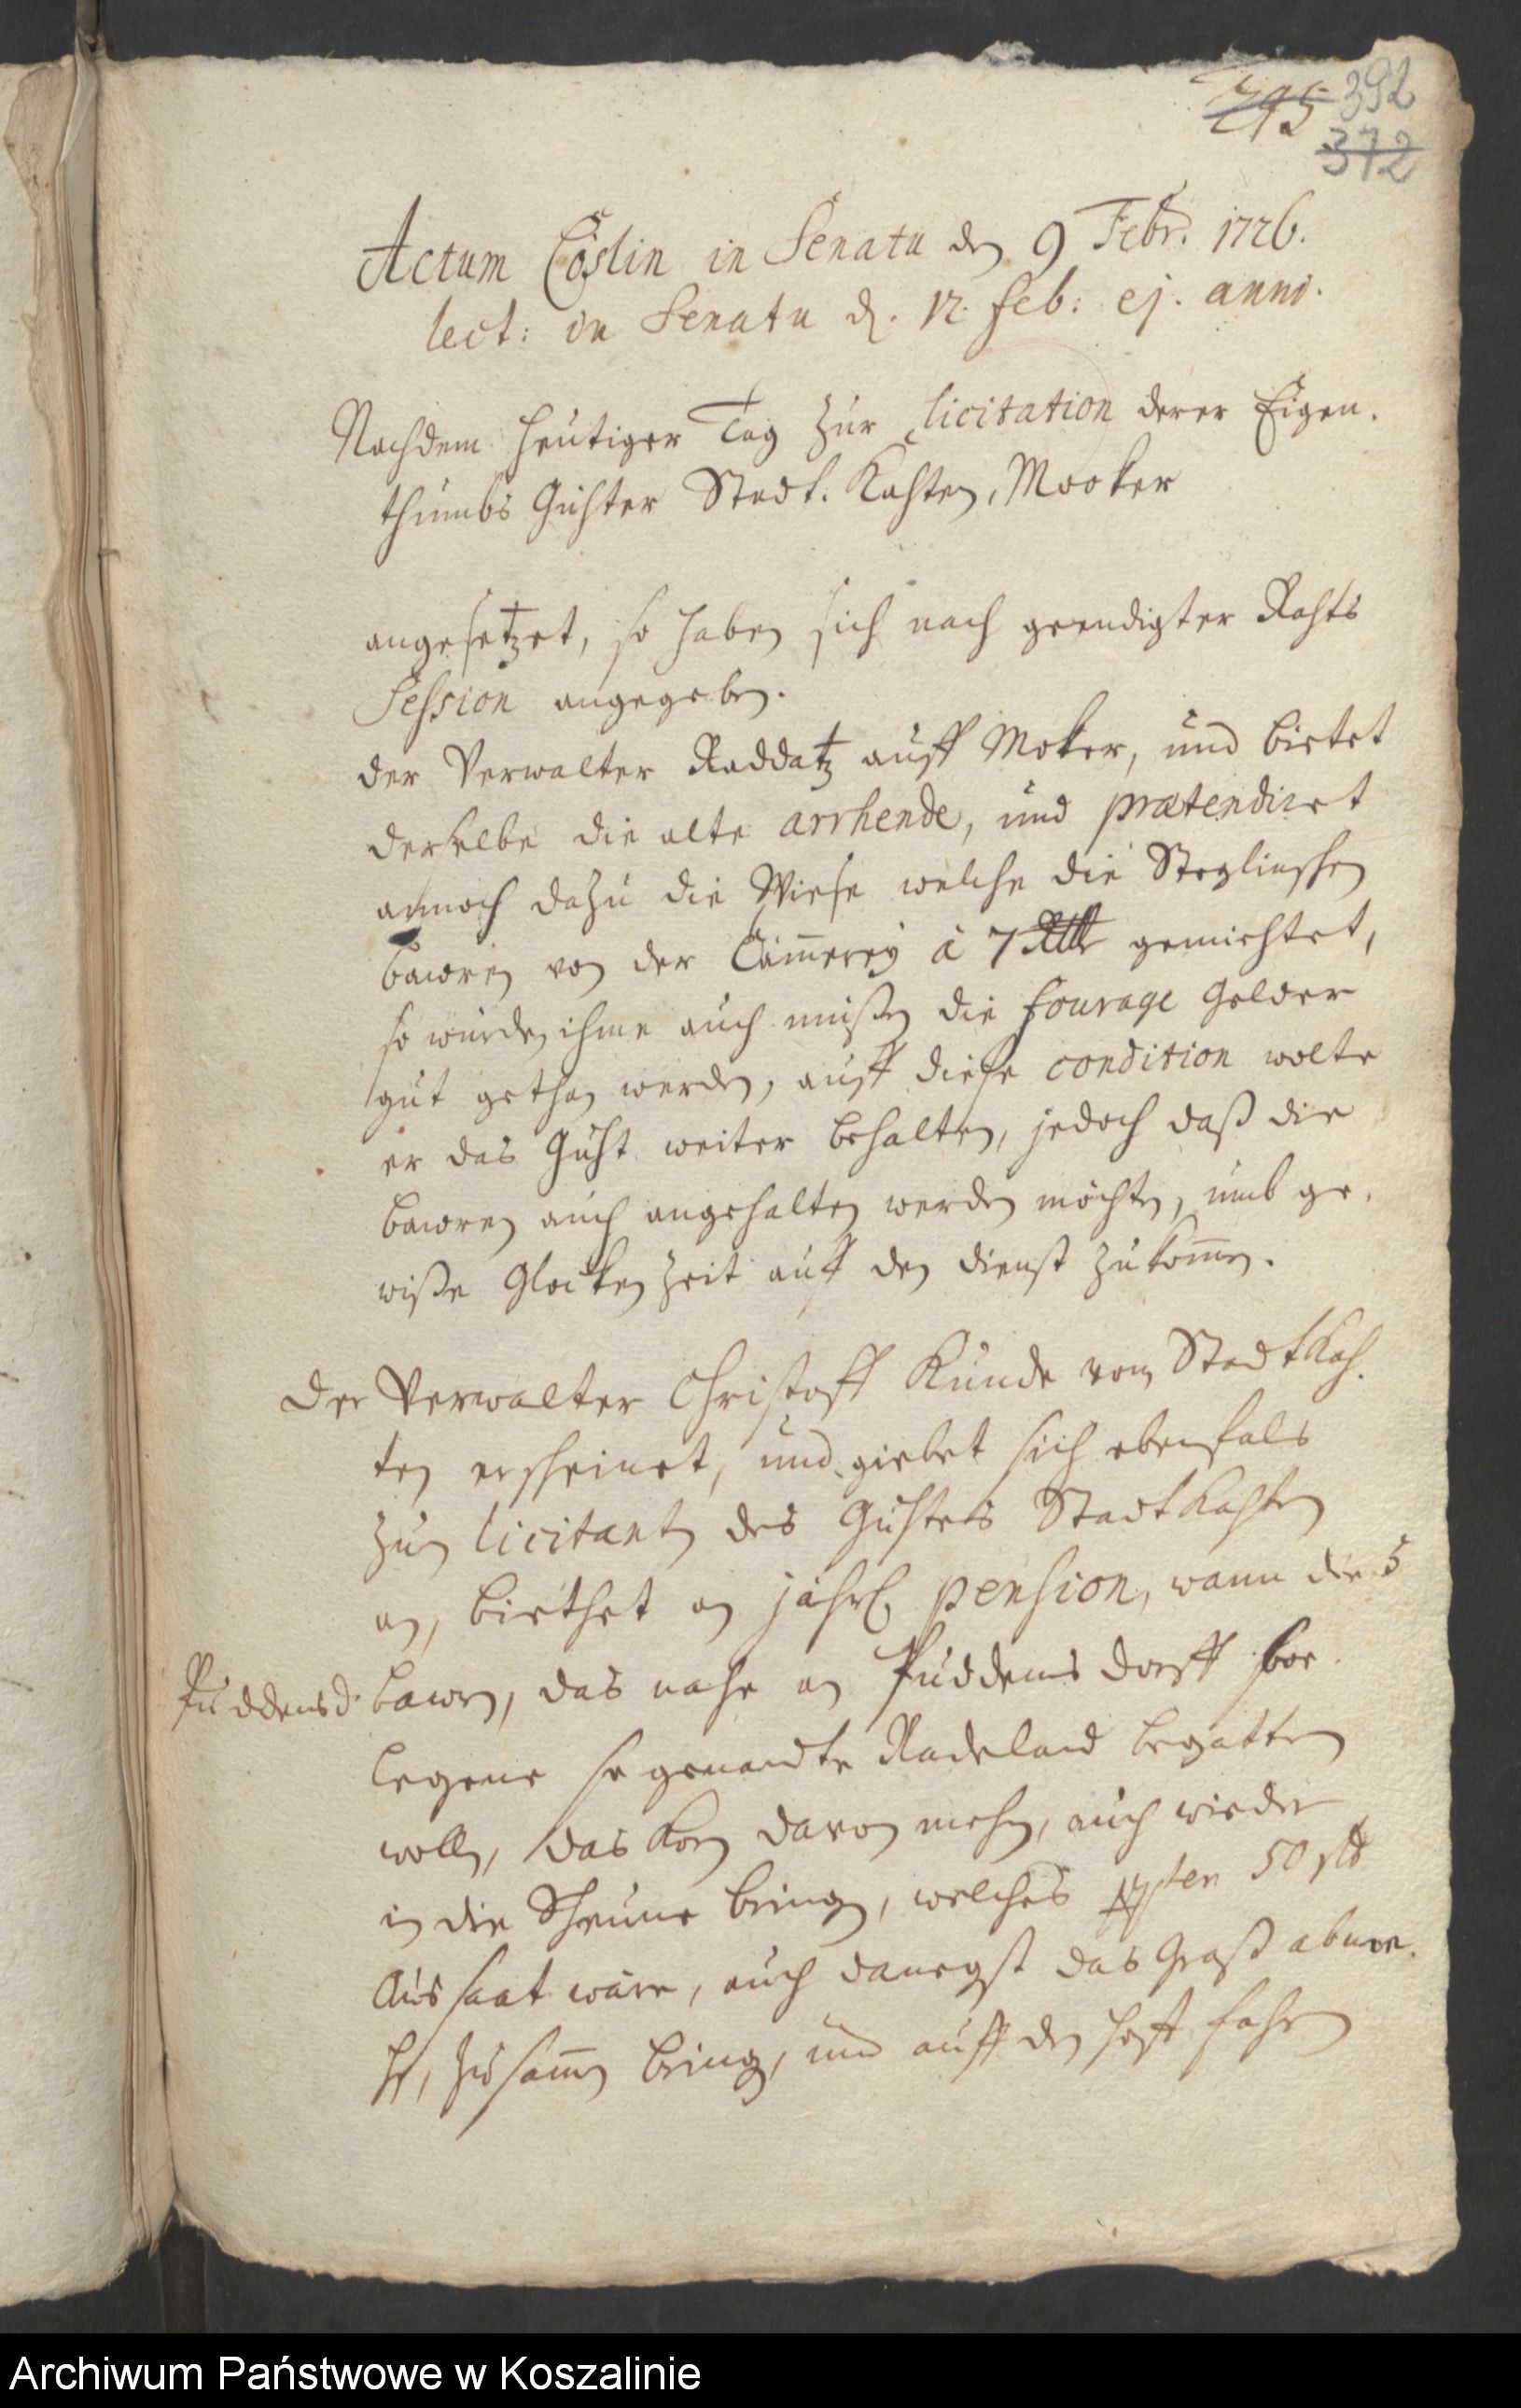 245 392
372
Actum Cöslin in Senatu den 9 Febr. 1726.
lect: in Senatu d. 12. feb: ej. anni.
Nachdem heutiger Tag zur licitation derer Eigen-
thumbs Gühter Stadt-Kahsten, Mooker
angesetzet, so haben sich nach geendigter Rahts
Session angegeben.
der Verwalter Raddatz auff Moker, und bietet
derselbe die alte arrhende, und praetendiret
annoch dazu die Wiese welche die Steglinschen
bawren von der Cämmerey à 7 Rthlr gemiehtet,
so würden ihme auch müßen die fourage Gelder
gut gethan werden, auff diese condition wolte
er das Guht weiter behalten, jedoch daß die
bawren auch angehalten werden möchten, umb ge-
wiße Glocken Zeit auff den dienst zu kommen.
Der Verwalter Christoff Kunde vom Stadt Kah-
ten erscheinet, und giebet sich ebenfals
zum licitanten des Guhtes Stadt Kahten
an, biethet an jährl. pension, wann die 5
Puddemsd. bawren, das nahe an Puddems dorff
legene so genandte Radeland begatten
wollen, das Korn davon mehen, auch wieder
in die Scheune bringen, welches 50 sch
Aussaat wäre, auch danegst das Graß abme-
hen, zusammen bringen, und auff den Hoff fahren
Archiwum Państwowe w Koszalinie